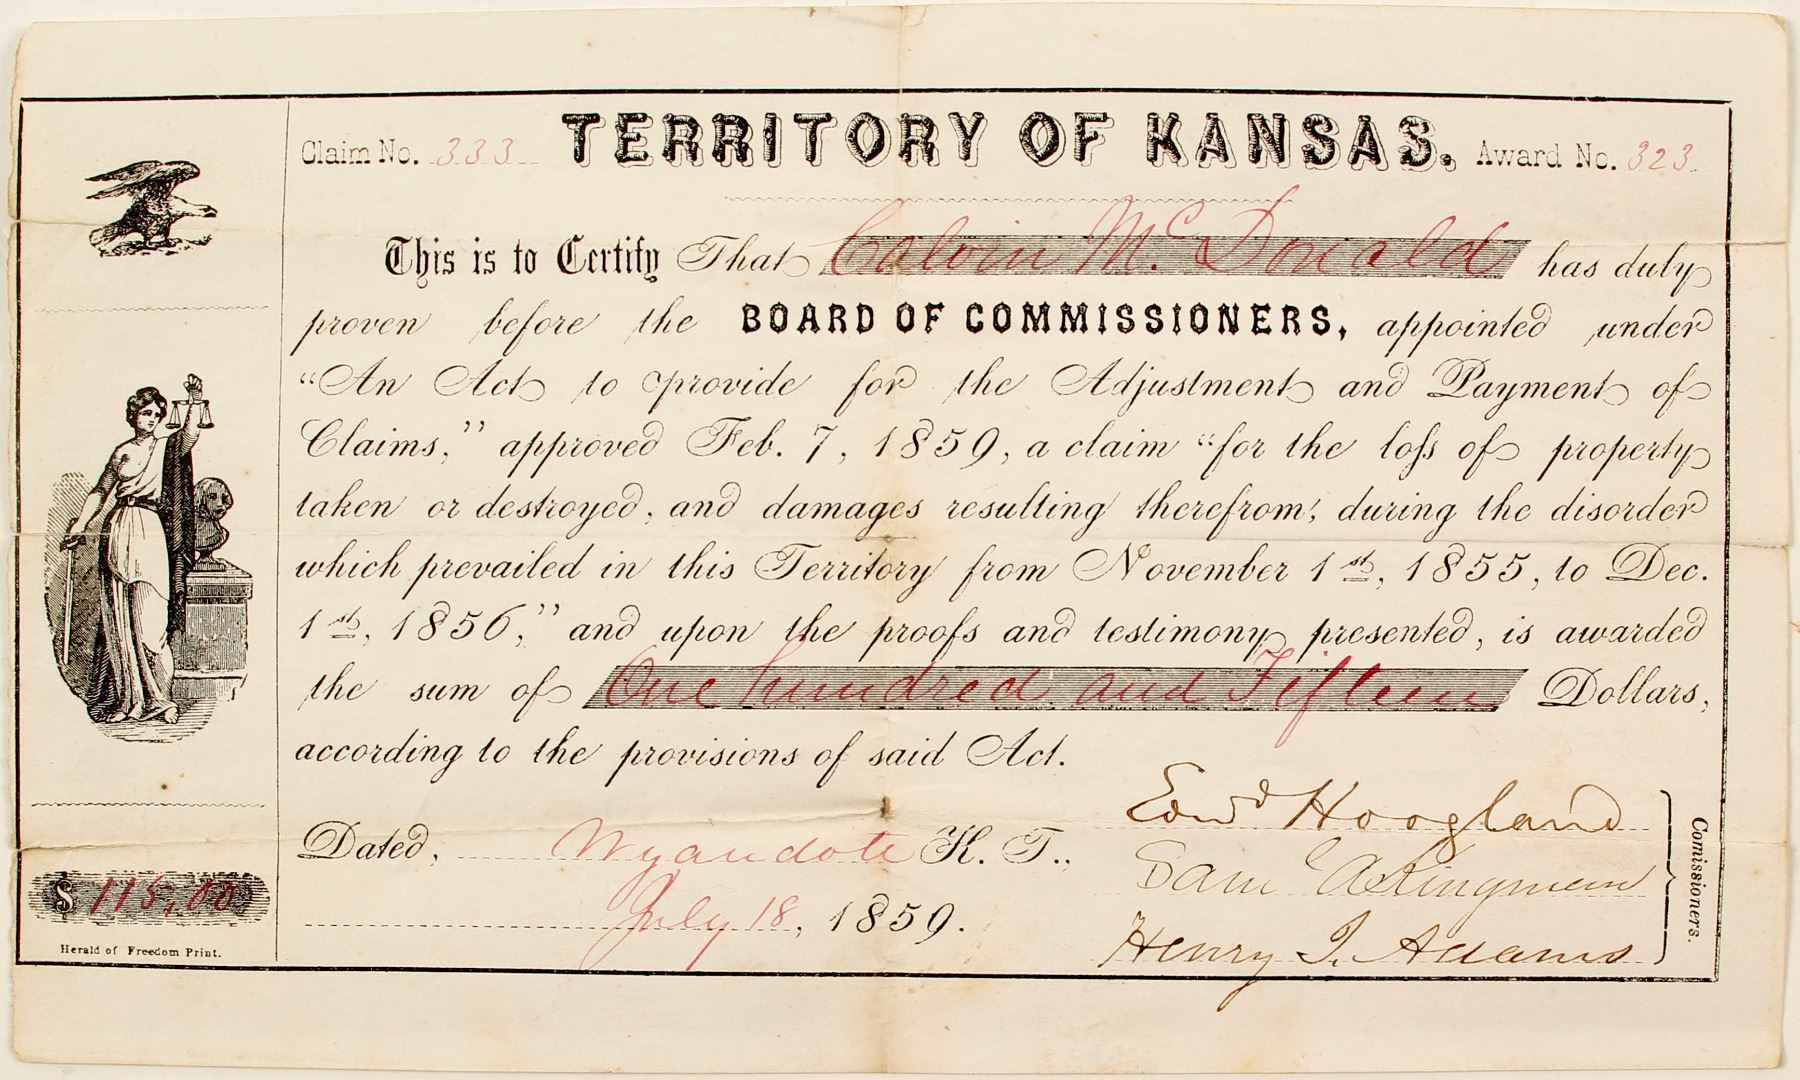 Claim No. 333 TERRITORY OF KANSAS. Award No. 323
This is to Certify That Calvin McDonald has duly
proven before the BOARD OF COMMISSIONERS, appointed under
"An Act to provide for the Adjustment and Payment of
Claims," approved Feb. 7, 1859, a claim "for the loss of property
taken or destroyed, and damages resulting therefrom, during the disorder
which prevailed in this Territory from November 1st, 1855, to Dec.
1st, 1856," and upon the proofs and testimony presented, is awarded
the sum of One hundred and Fifteen Dollars,
according to the provisions of said Act.
Dated, Wyandott K. T.,
July 18, 1859.
Edwd Hoogland
Sam A Kingman
Henry J. Adams
Comissioners.
$ 115,00
Herald of Freedom Print.